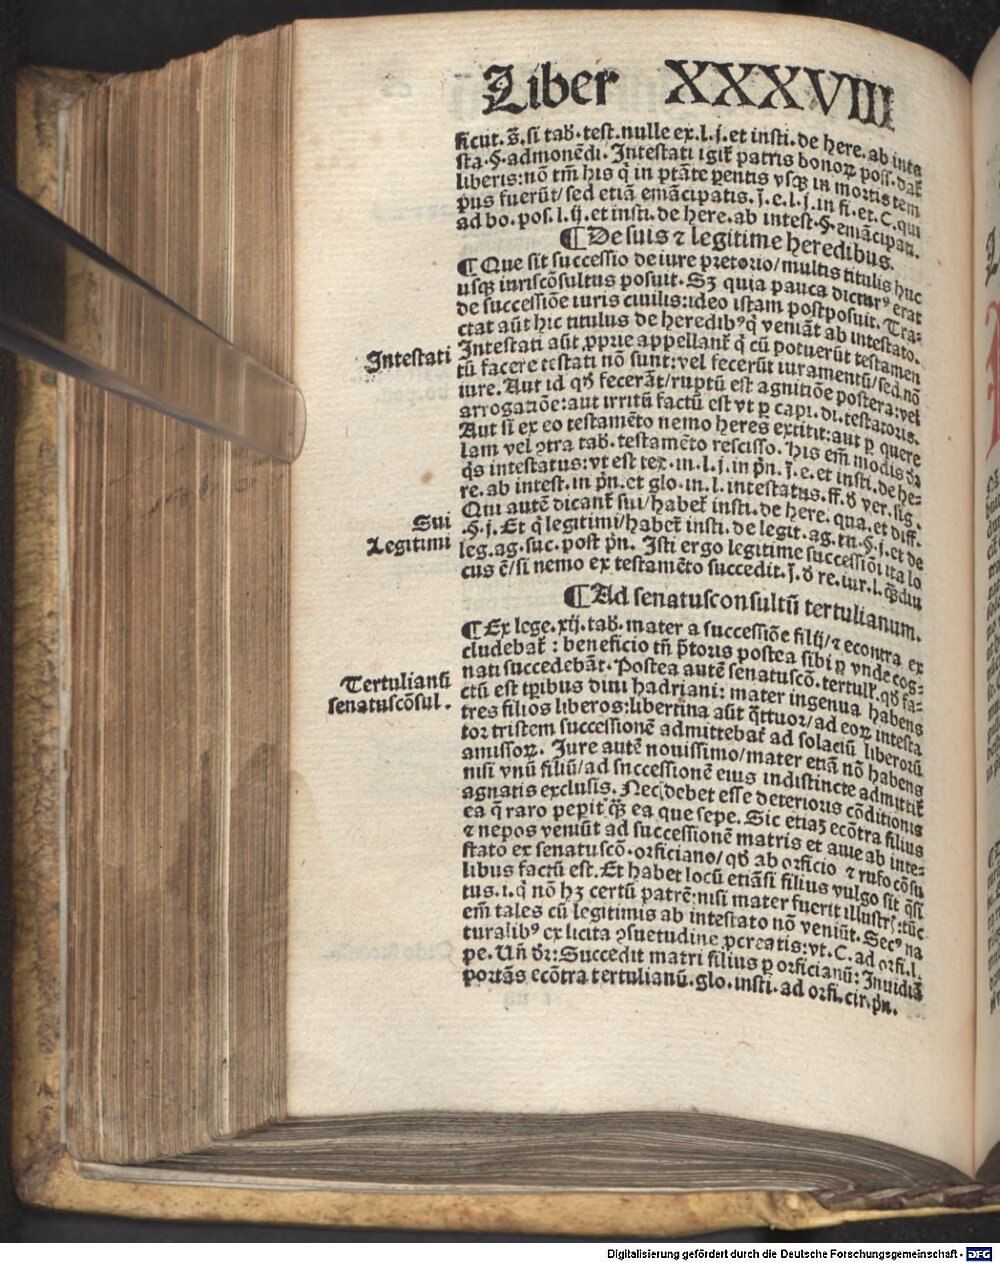 Liber XXXVIII
sicut. s̄. si tab. test. nulle ex. l. j. et insti. de here. ab inte
sta. §. admonēdi. Intestati igit᷑ patris bonoꝝ poss. dat᷑
liberis: nō tm̄ his q̇ in ptāte pentis vsqꝫ in mortis tem
pus fuerūt/ sed etiā emācipatis. j. e. l. j. in fi. et. C. qui
ad bo. pos. l. ij. et insti. de here. ab intest. §. emācipati.
¶ De suis ⁊ legitime heredibus.
¶ Que sit successio de iure pretorio/ multis titulis huc
usqꝫ iuriscōsultus posuit. Sꝫ quia pauca dictur⁹ erat
de successiōe iuris ciuilis: ideo istam postposuit. Tra-
ctat aūt hic titulus de heredib⁹ q̇ veniāt ab intestato.
Intestati Intestati aūt ꝓprie appellant᷑ q̇ cū potuerūt testamen
tū facere testati nō sunt: vel fecerūt iuramentū/ sed nō
iure. Aut id qḋ fecerāt/ ruptū est agnitiōe postera: vel
arrogatiōe: aut irritū factū est vt ꝑ capi. di. testatoris.
Aut si ex eo testamēto nemo heres extitit: aut ꝑ quere
lam vel ↄtra tab. testamēto rescisso. His em̄ modis dr̄
q̇s intestatus: vt est tex. in. l. j. in pn̄. j. e. et insti. de he-
re. ab intest. in pn̄. et glo. in. l. intestatus. ff. ḋ ver. sig.
Sui Qui autē dicant᷑ sui/ habet᷑ insti. de here. qua. et diff.
Legitimi §. j. Et q̇ legitimi/ habet᷑ insti. de legit. ag. tu. §. j. et de
leg. ag. suc. post pn̄. Isti ergo legitime successiōi ita lo
cus ē/ si nemo ex testamēto succedit. j. ḋ re. iur. l. qꝫdiu
¶ Ad senatusconsultū tertulianum.
¶ Ex lege. xij. tab. mater a successiōe filij/ ⁊ econtra ex
cludebat᷑: beneficio tn̄ p̄toris postea sibi ꝑ vnde cog-
nati succedebāt. Postea autē senatuscō. tertull. qḋ fa-
Tertuliani senatuscōsul. ctū est tꝑibus diui hadriani: mater ingenua habens
tres filios liberos: libertina aūt q̄ttuor/ ad eoꝝ intesta
toꝝ tristem successionē admittebat᷑ ad solaciū liberorū
amissoꝝ. Jure autē nouissimo/ mater etiā nō habens
nisi vnū filiū/ ad successionē eius indistincte admittit᷑
agnatis exclusis. Nec debet esse deterioris cōditionis
ea q̇ raro peꝑit qꝫ ea que sepe. Sic etiaꝫ ecōtra filius
⁊ nepos veniūt ad successionē matris et auie ab inte-
stato ex senatuscō. orficiano/ qḋ ab orficio ⁊ rufo cōsu
libus factū est. Et habet locū etiāsi filius vulgo sit q̄si
tus. i. q̇ nō hꝫ certū patrē: nisi mater fuerit illustr̄: tūc
em̄ tales cū legitimis ab intestato nō veniūt. Sec⁹ na
turalib⁹ ex licita ↄsuetudine ꝓcreatis: vt. C. ad orfi. l.
pe. Un̄ dr̄: Succedit matri filius ꝑ orficianū: Inuidiā
portās ecōtra tertulianū. glo. insti. ad orfi. cir. pn̄.
Digitalisierung gefördert durch die Deutsche Forschungsgemeinschaft - DFG